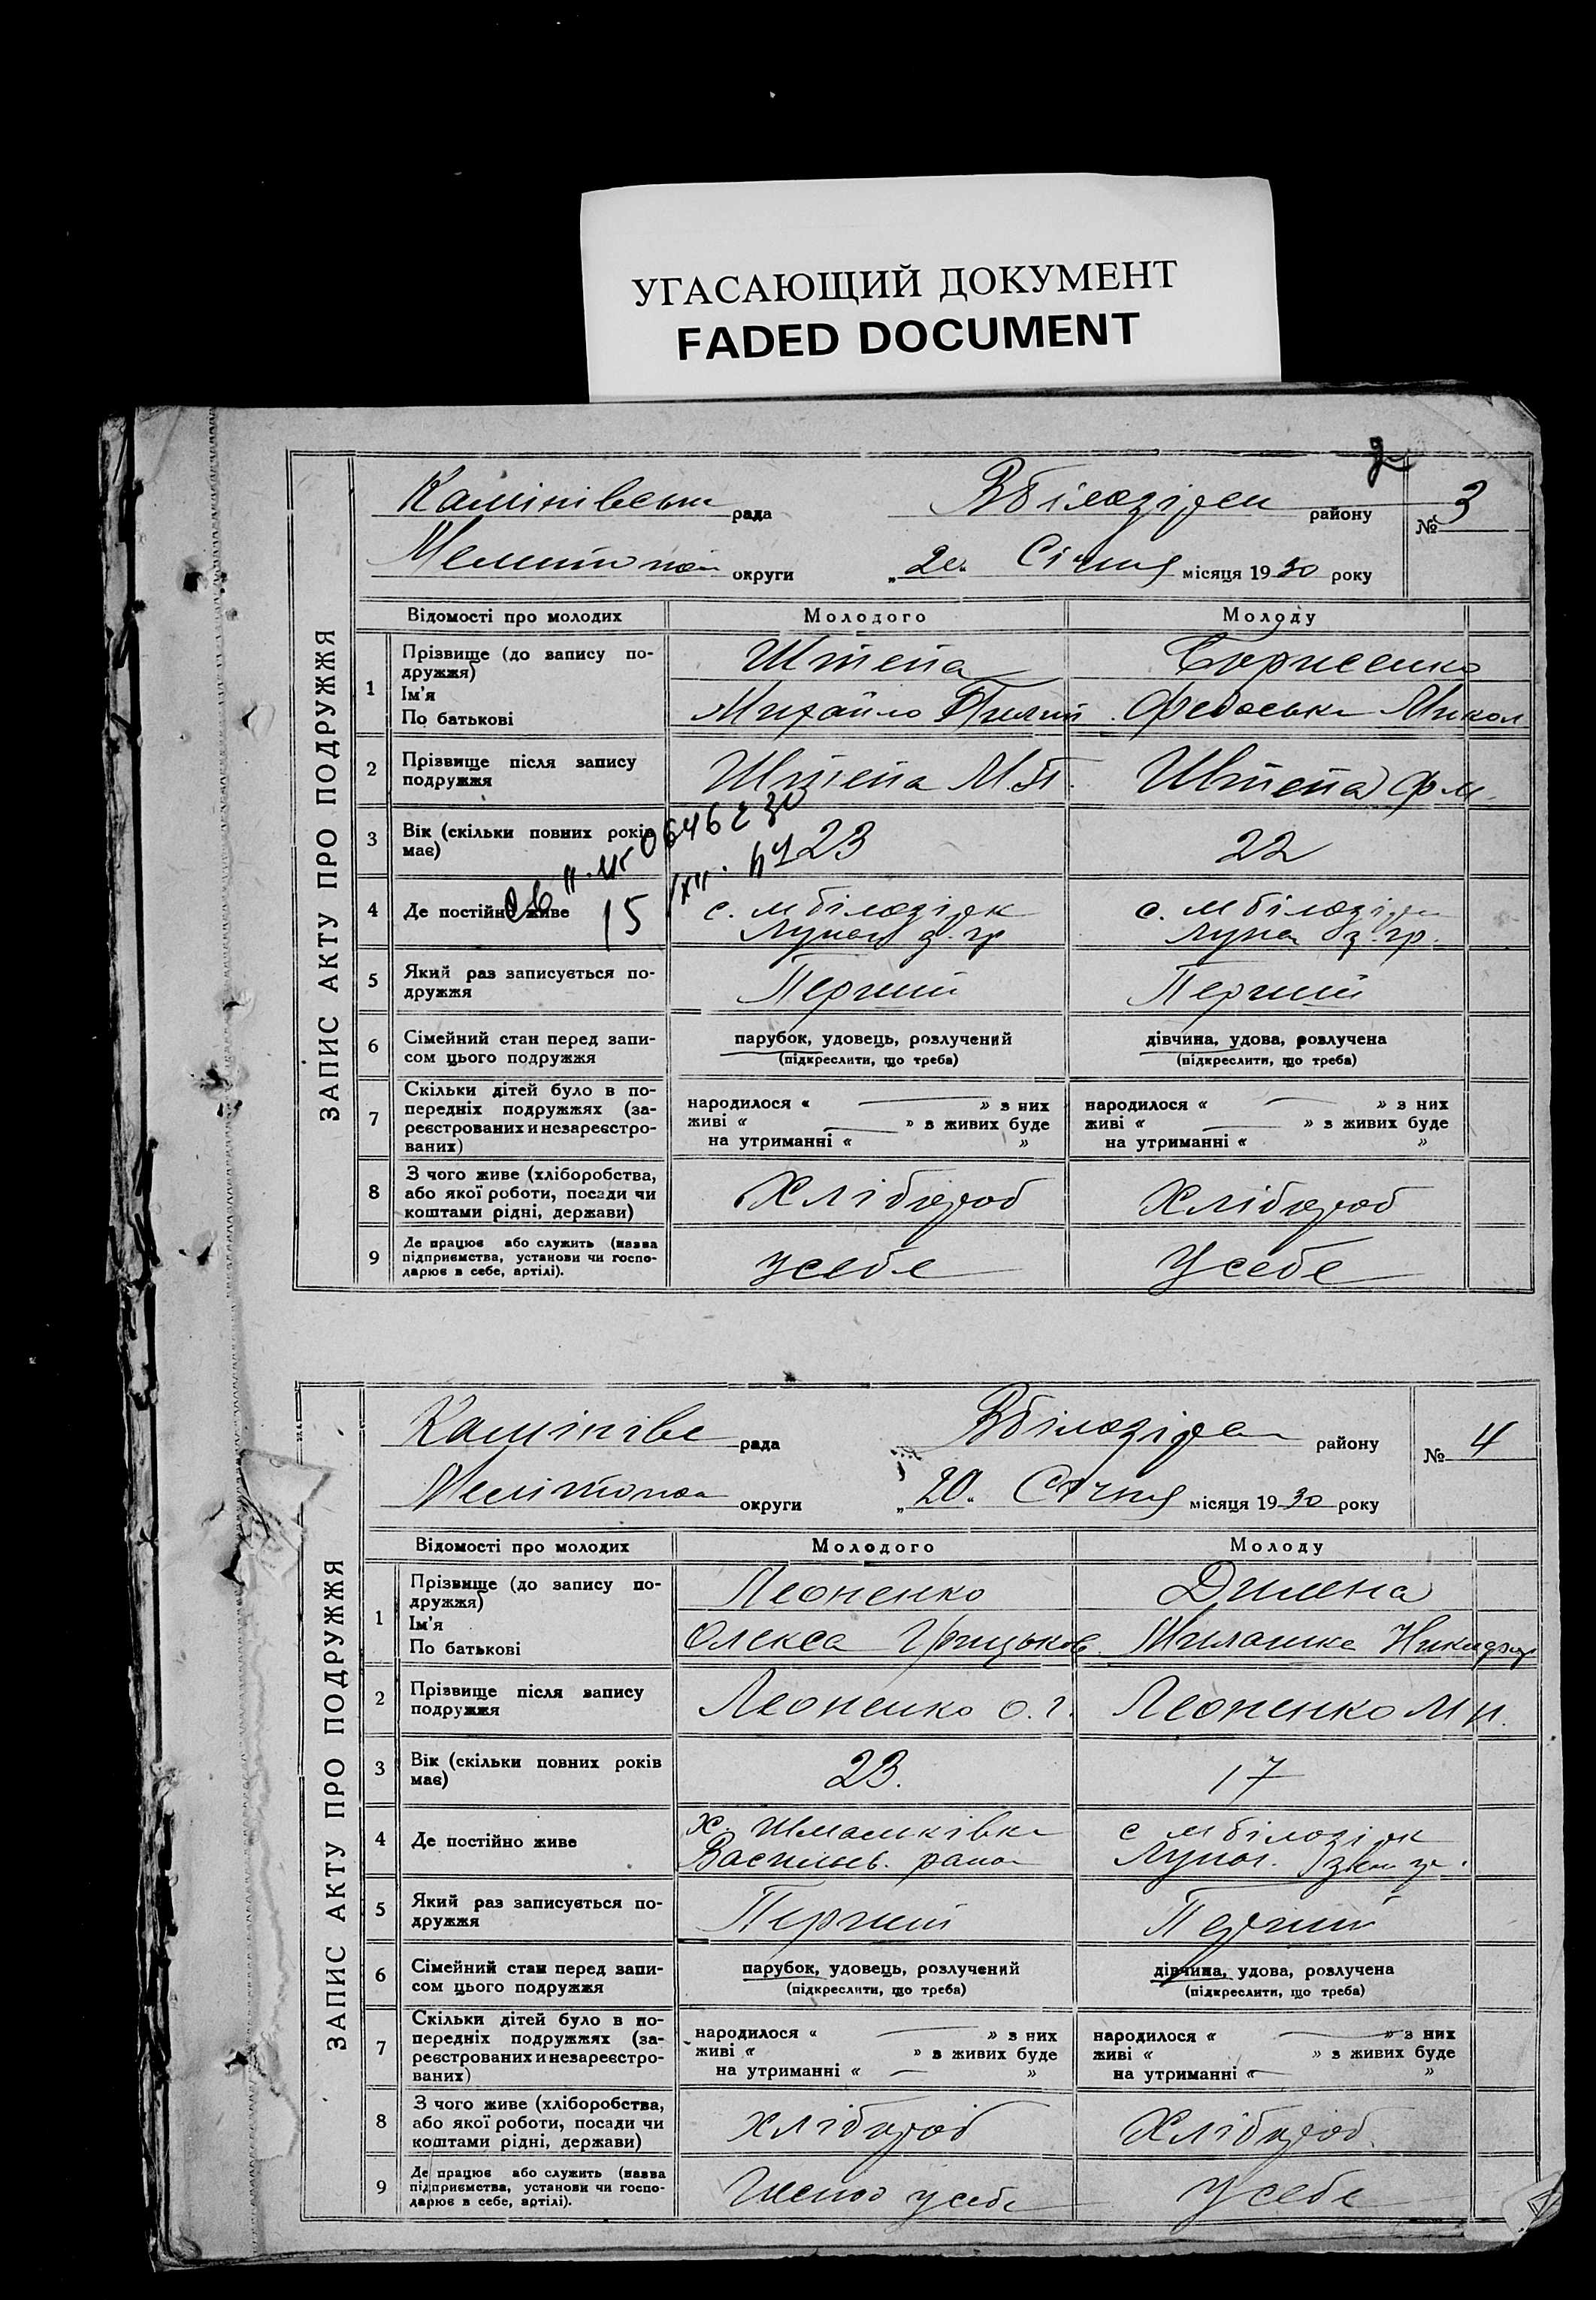 УГАСАЮЩИЙ ДОКУМЕНТ
FADED DOCUMENT
2
ЗАПИС АКТУ ПРО ПОДРУЖЖЯ
рада Вбілозірськ району № 3
округи „20„ Січня місяця 1930 року
Відомості про молодих Молодого Молоду
1 Прізвище (до запису по-
дружжя)
Ім'я
По батькові
Штепа Борисенко
Михайло Федоська Микол
2 Прізвище після запису
подружжя
Штепа М.П. Штепа Ф М
3 Вік (скільки повних років
має)
23 22
15
4 Де постійно живе
с. мбілозірк с. мбілозірк
5 Який раз записується по-
дружжя
Перший Перший
6 Сімейний стан перед запи-
сом цього подружжя
парубок, удовець, розлучений дівчина, удова, розлучена
(підкреслити, що треба) (підкреслити, що треба)
7 Скільки дітей було в по-
передніх подружжях (за-
реєстрованих и незареєстро-
ваних)
народилося « » з них народилося « » з них
живі « » в живих буде живі « » в живих буде
на утриманні « » на утриманні « »
8 З чого живе (хліборобства,
або якої роботи, посади чи
коштами рідні, держави)
Хлібороб Хлібороб
9 Де працює або служить (назва
підприємства, установи чи госпо-
дарює в себе, артілі).
усебе Усебе
ЗАПИС АКТУ ПРО ПОДРУЖЖЯ
рада Вбілозірськ району № 4
округи „20„ Січня місяця 1930 року
Відомості про молодих Молодого Молоду
1 Прізвище (до запису по-
дружжя)
Ім'я
По батькові
Леоненко
Олекса Грицьков
2 Прізвище після запису
подружжя
Леоненко О.Г. Леоненко М Н.
3 Вік (скільки повних років
має)
23. 17
4 Де постійно живе
х. с мбілозірк
Васильев. район
5 Який раз записується по-
дружжя
Перший Перший
6 Сімейний стан перед запи-
сом цього подружжя
парубок, удовець, розлучений дівчина, удова, розлучена
(підкреслити, що треба) (підкреслити, що треба)
7 Скільки дітей було в по-
передніх подружжях (за-
реєстрованих и незареєстро-
ваних)
народилося « » з них народилося « » з них
живі « » в живих буде живі « » в живих буде
на утриманні « » на утриманні « »
8 З чого живе (хліборобства,
або якої роботи, посади чи
коштами рідні, держави)
хлібороб Хлібороб
9 Де працює або служить (назва
підприємства, установи чи госпо-
дарює в себе, артілі).
усебе Усебе